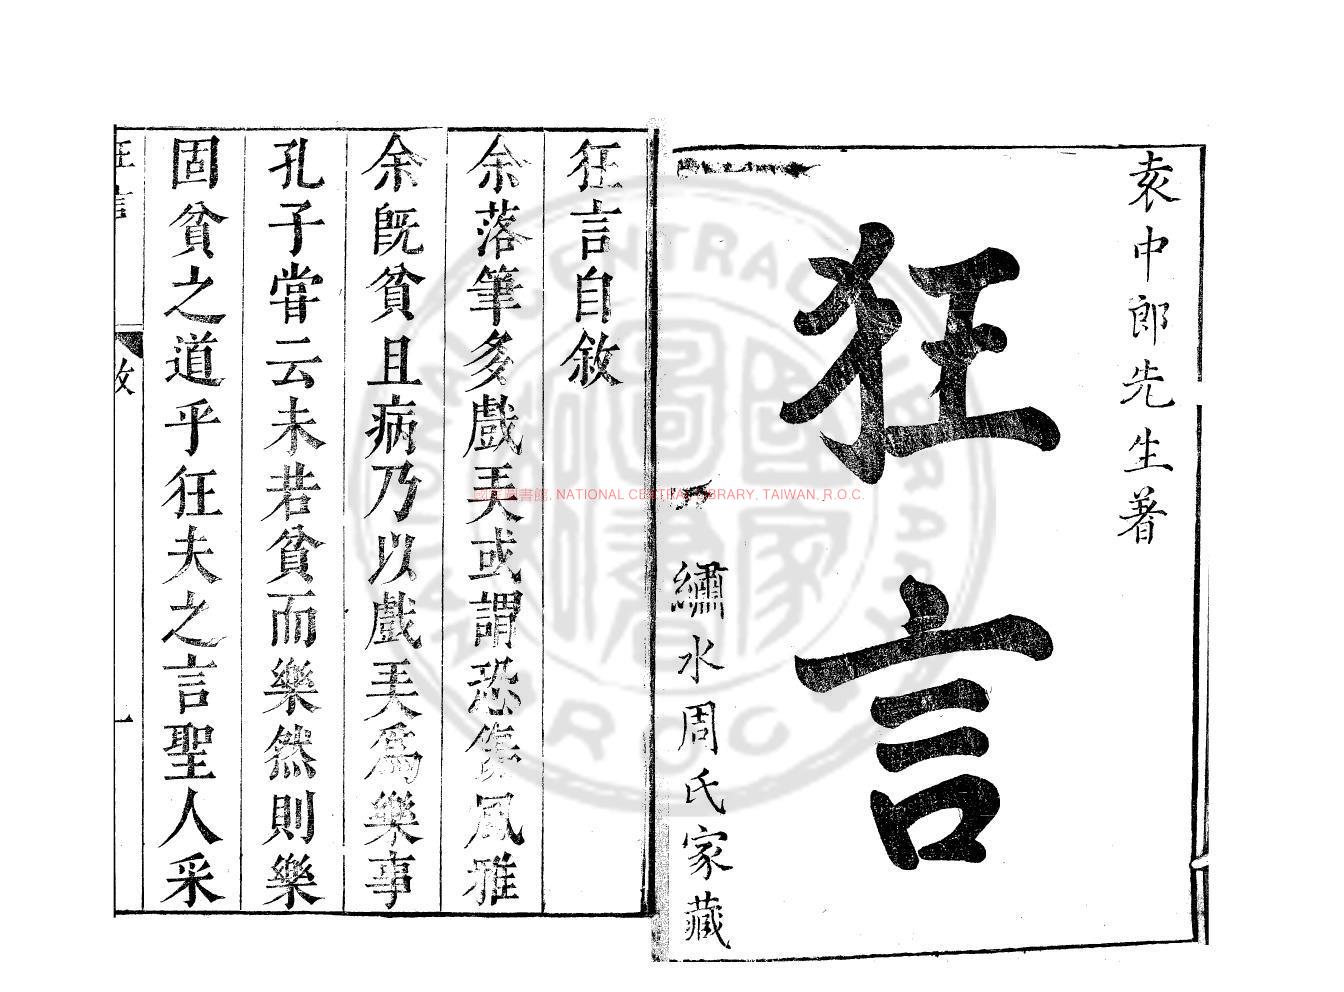 袁中郎先生著
狂言
繡水周氏家藏
狂言自敘
余落筆多戲弄或謂恐風雅
余既貧且病乃以戲弄爲樂事
孔子嘗云未若貧而樂然則樂
固貧之道乎狂夫之言聖人采
狂言
敘
一
國家圖書館, NATIONAL CENTRAL LIBRARY, TAIWAN, R.O.C.